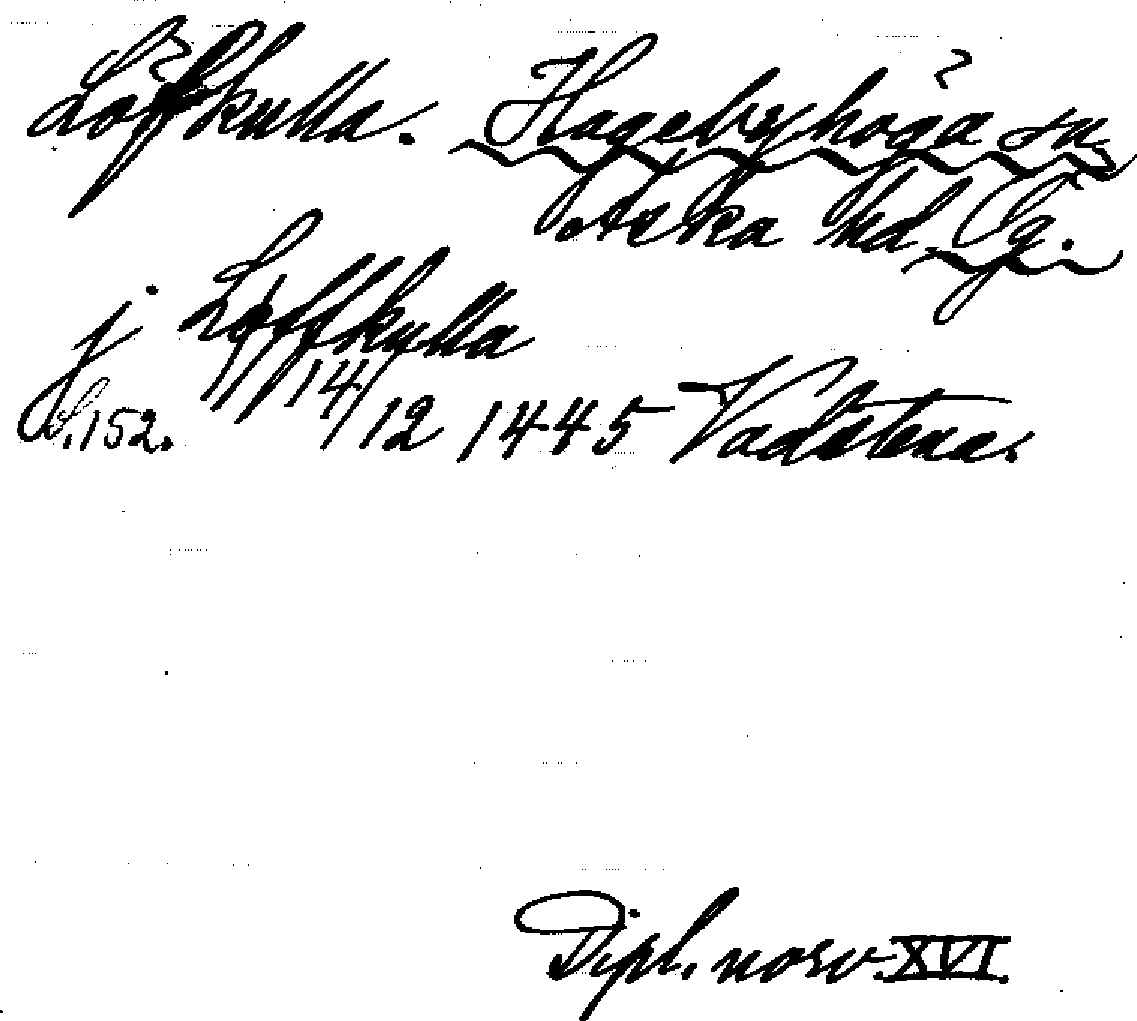 Löfkulla. Hagebyhöga ? sn,
Aska hd, Ög.
j Løffkulla
S.152. 14/12 1445 Vadstena.
Dipl. norv. XVI.